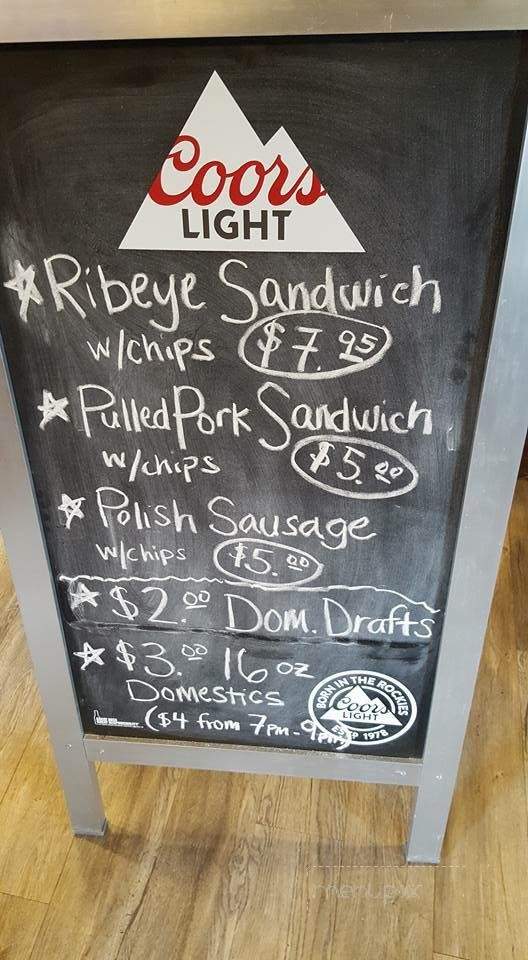 Coors
LIGHT
Ribeye Sandwich
w/chips $7.95
Pulled Pork Sandwich
w/chips $5.00
Polish Sausage
w/chips $5.00
$2.00 Dom. Drafts
$3.00 16 oz
Domestics
($4 from 7pm-9pm)
BORN IN THE ROCKIES
Coors
LIGHT
EST'P 1978
menupix